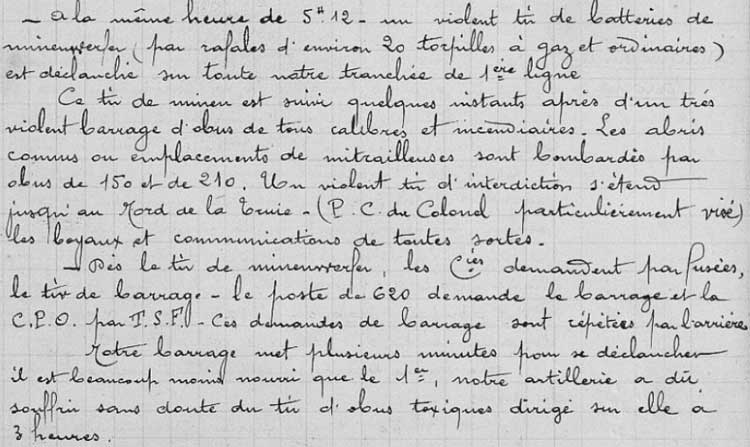 - A la même heure de 5ʰ12 - un violent tir de batteries de
minenwerfer (par rafales d'environ 20 torpilles à gaz et ordinaires)
est déclanché sur toute notre tranchée de 1ère ligne
Ce tir de minen est suivi quelques instants après d'un très
violent barrage d'obus de tous calibres et incendiaires. Les abris
connus ou emplacements de mitrailleuses sont bombardés par
obus de 150 et de 210. Un violent tir d'interdiction s'étend
jusqu'au Nord de la Truie - (P.C. du Colonel particulièrement visé)
les boyaux et communications de toutes sortes.
- Dès le tir de minenwerfer, les Cies demandent par fusées,
le tir de barrage - le poste de 620 demande le barrage et la
C.P.O. par T.S.F. - Ces demandes de barrage sont répétées par l'arrière
Notre barrage met plusieurs minutes pour se déclancher
il est beaucoup moins nourri que le 1er, notre artillerie a dû
souffrir sans doute du tir d'obus toxiques dirigé sur elle à
3 heures.